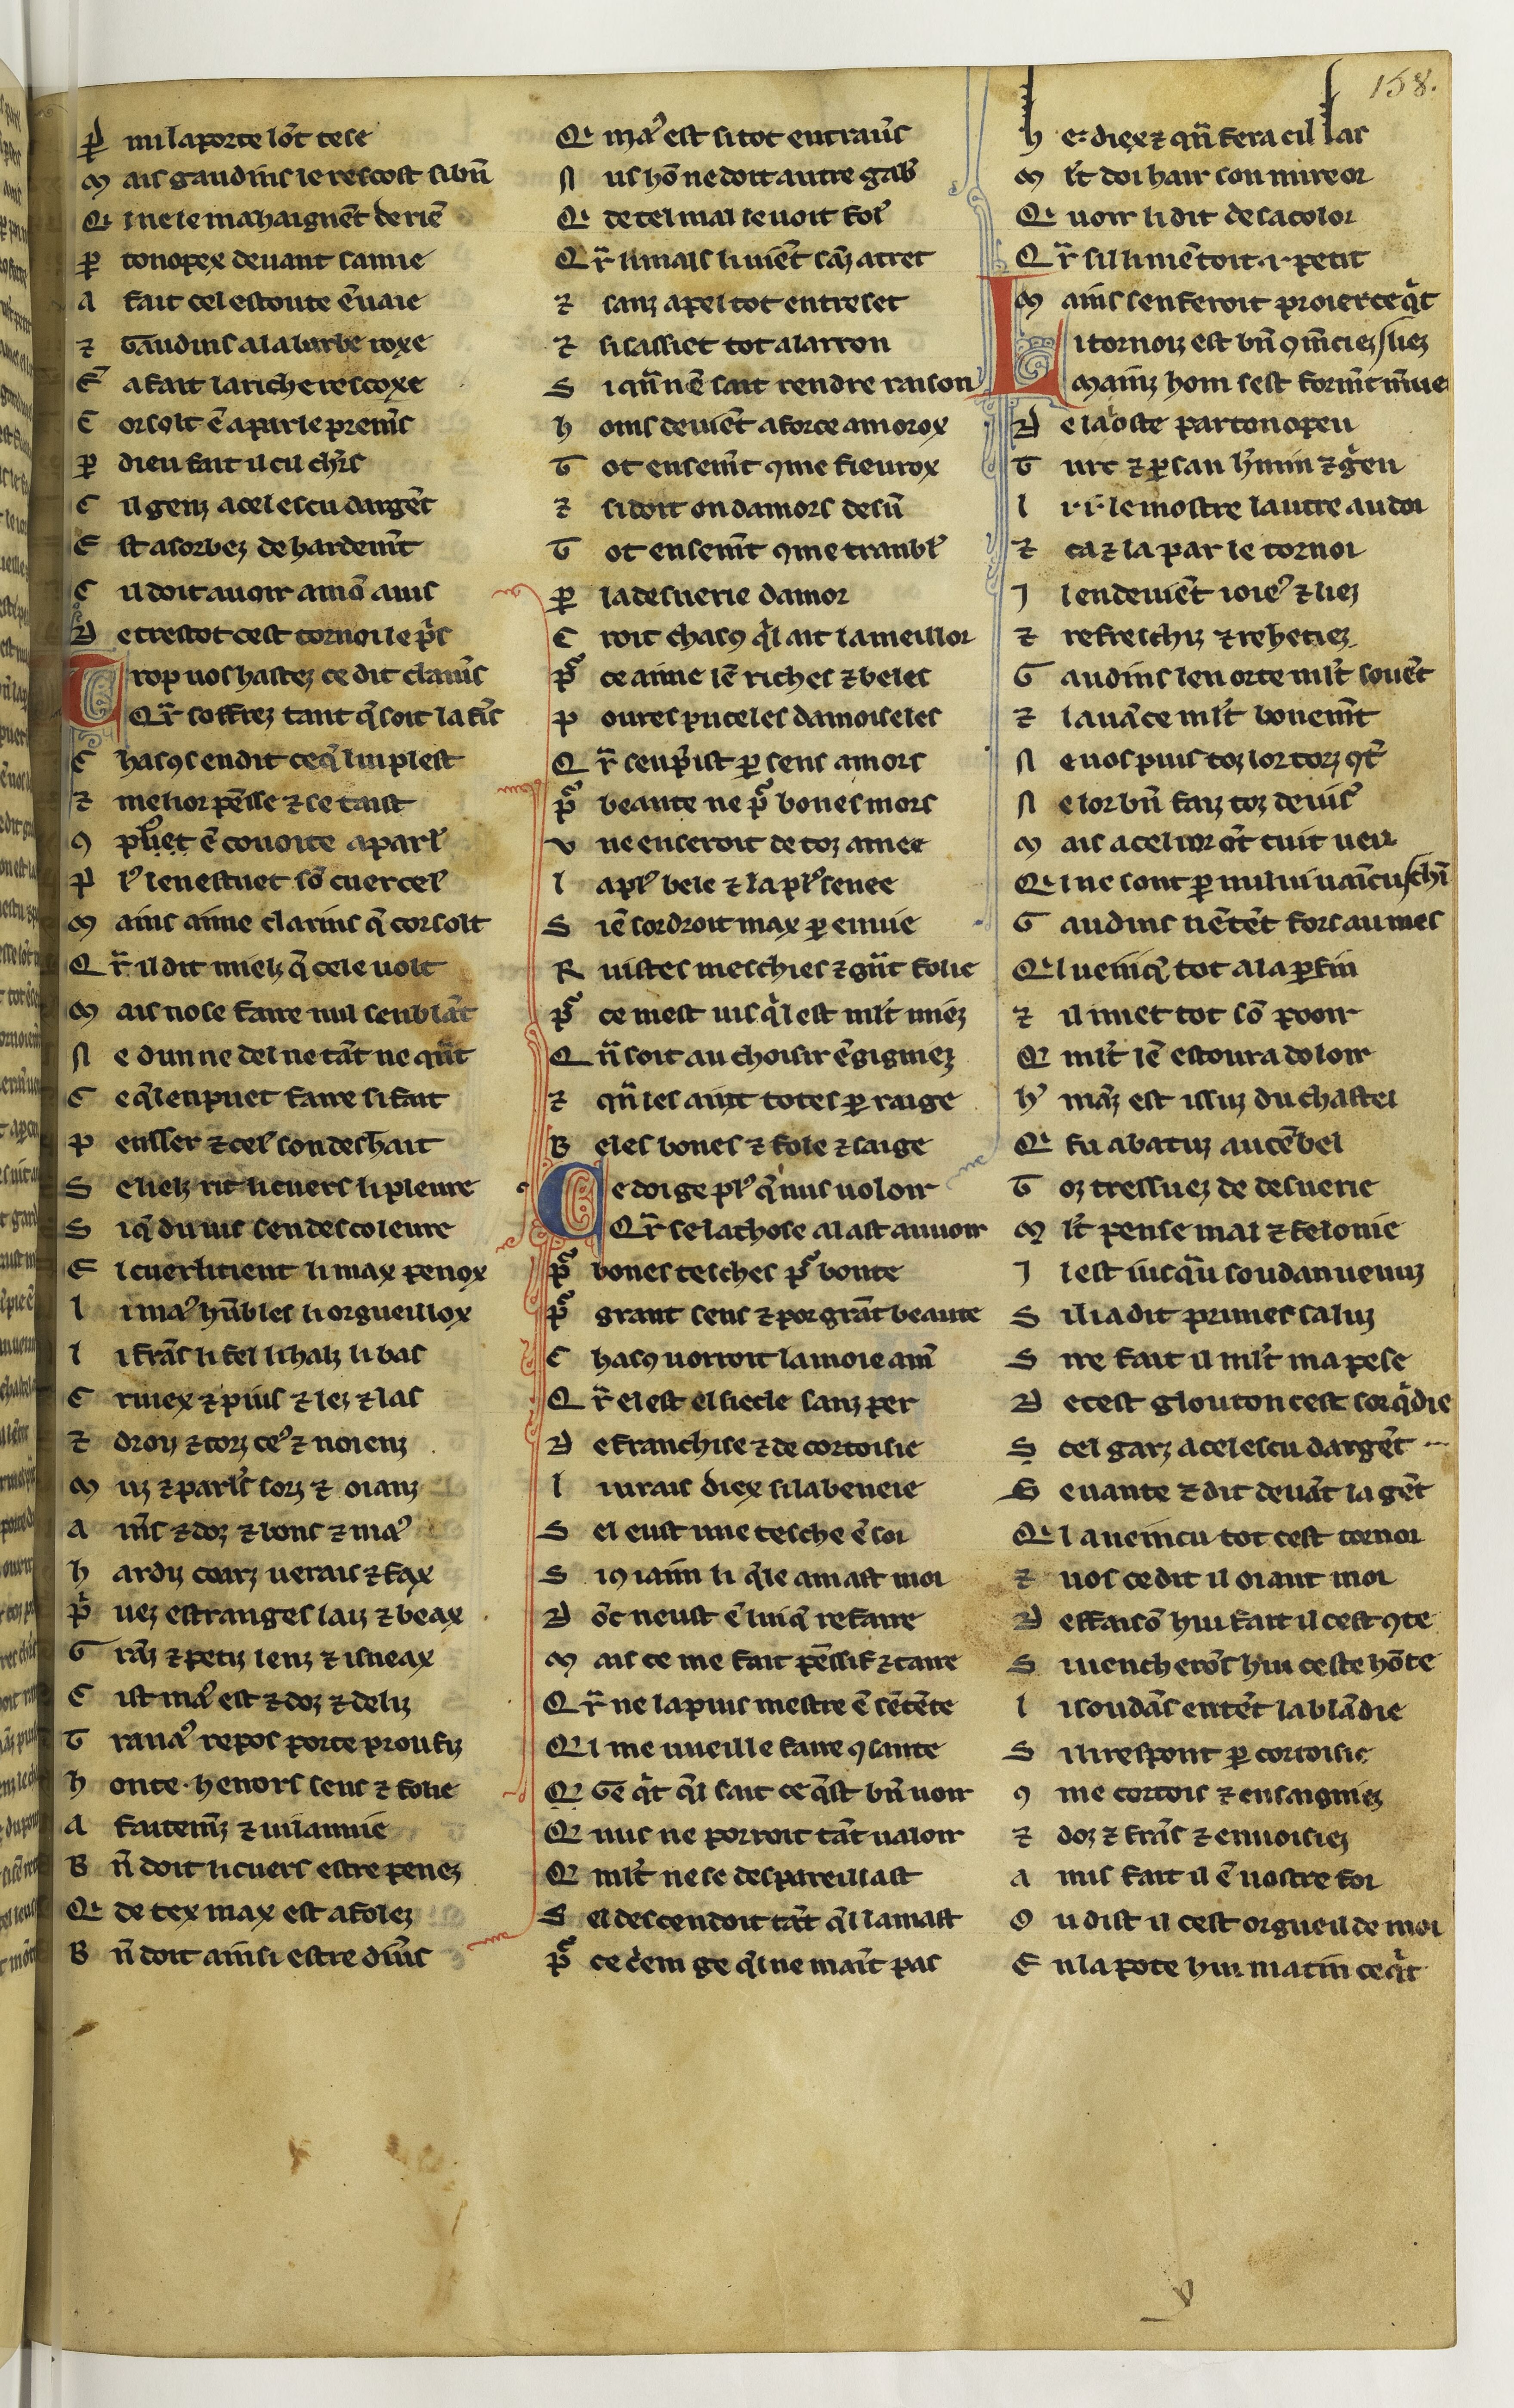 158.
ꝑ mi la porte lōt tese
M ais gaudins le rescost si bn̄
Q i ne le mahaignēt de riē
ꝑ tonopex devant samie
A fait cel estoute ēvaie
⁊ Gaudins a la barbe roxe
E a fait la riche rescoxe
C orsolt ē apar le premˢ
ꝑ dieu fait il cil chˡrs
C il genz a cel escu dargēt
E st asorbez de hardemt̄
C il doit avoir a mō avis
D e trestot cest tornoi le pˢs
T rop vos hastez ce dit clarins
Qr̄ soffrez tant q̄ soit la fins
C hasꝯ en dit ce q̄ lui plest
⁊ melior pēsse ⁊ se taist
ꝯ pˡiet ē covoite a parlˀ
ꝑ lˀ len estuet sō cuer celˀ
M ains aime clarins q̄ corsolt
Q r̄ il dit mielz q̄ cele volt
M ais nose faire nul senblāt
N e dun ne del ne tāt ne qn̄t
C e q̄ len puet faire si fait
P ensser ⁊ celˀ son deshait
S e li elz rit li cuers li pleure
S i q̄ du vis sen descoleure
E l cuer li tient li max penox
L i maˀ hūbles li orgueillox
L i frās li fel li halz li bas
C ruiex ⁊ pius ⁊ lez ⁊ las
⁊ droiz ⁊ torz ceˀ ⁊ noienz
M uz ⁊ parlˢ sorz ⁊ oianz
A mˢs ⁊ doz ⁊ bons ⁊ maˀ
H ardiz coarz verais ⁊ fax
P vez estranges laiz ⁊ beax
G rāz ⁊ petiz lenz ⁊ isneax
C ist maˀ est ⁊ doz ⁊ deliz
T ravaˀ repos porte proufiz
H onte henors sens ⁊ folie
A faitemz̄ ⁊ vilannie
B n̄ doit li cuers estre penez
Q i de tex max est afolez
B n̄ doit ainsi estre divˢs
Q i maˀ est si tot en travˢs
N us hō ne doit autre gabˀ
Q i de tel mal le voit folˀ
Q r̄ li mals li viēt sāz atret
⁊ sanz apel tot entreset
⁊ si lassiet tot a larron
S i qn̄ nē sait rendre raison
H oms devient a force amorox
T ot ensemt̄ ꝯme fievrox
⁊ si doit on damors desn̄
T ot ensemt̄ ꝯme tranblˀ
ꝑ la desverie damor
C roit chasꝯ ql̄ ait la meillor
ꝑ ce aime lē riches ⁊ beles
P oures puceles damoiseles
Q r̄ sen prist ꝑ sens amors
ꝑ beaute ne ꝑ bones mors
V ne en seroit de toz amee
L a plˀ bele ⁊ la plˀ senee
S iē sordroit max ꝑ envie
R uistes meschies ⁊ gn̄t folie
ꝑ ce mest vis ql̄ est ml̄t miez
Q n̄ soit au choisir ēsigniez
⁊ qn̄ les aint totes ꝑ raige
B eles bones ⁊ fole ⁊ saige
C e doi ge plˀ q̄ nus voloir
Qr̄ se la chose alast a voir
ꝑ bones tesches ꝑ bonte
ꝑ grant sens ⁊ por grāt beaute
C hasꝯ vorroit la moie am̄
Q r̄ el est el siecle sanz per
D e franchise ⁊ de cortoisie
L i vrais diex si la beneie
S el eust une tesche ē soi
S i ꝯ iaim li q̄ le amast moi
D ōc neust ē lui q̄ refaire
M ais ce me fait pēssif ⁊ taire
Q r̄ ne la puis mestre ē sētēte
Q i me vueille faire ꝯ sante
Q i Gē qˡt ql̄ sait ce q̄st bn̄ voir
Q i nus ne porroit tāt valoir
Q i ml̄t ne se despareillast
S el descendoit tāt ql̄ lamast
ꝑ ce crem ge ql̄ ne maīt pas
H e diex ⁊ qn̄ fera cil las
M lt̄ doi hair son mireor
Q i voir li dit de sa color
Q r̄ sil li mētoit .i. petit
M ains sen feroit proier ce qˡt
L i tornoiz est bn̄ ꝯmˡciez sliez
M ainz hom sest formt̄ mˡve
D e la oste partonopeu
T urc ⁊ ꝑsan hˡmin ⁊ gˡeu
L i .i. le mostre lautre au doi
⁊ ca ⁊ la par le tornoi
I l en deviēt ioieˀ ⁊ liez
⁊ refreschiz ⁊ rehetiez
G audins len orte ml̄t sovēt
⁊ lavāce ml̄t bonemt̄
N e vos puis toz lor torz ꝯtˀ
N e lor bn̄ faiz toz devisˀ
M ais a celior ōt tuit veu
Q i ne sont ꝑ nului vaīcu
G audins niētēt fors au mes
Q i veinq̄ tot a la ꝑ fin
⁊ il met tot sō pooir
Q i ml̄t lē estovra doloir
Hˀ māz est issuz du chastel
Q i fu abatuz au cēbel
T oz tressuez de desverie
M lt̄ pense mal ⁊ felonie
I l est iusqˡu soudan venuz
S i li a dit primes saluz
S ire fait il ml̄t ma pese
D e cest glouton cest sorqˡdie
S cel garz a cel escu dargēt
S e vante ⁊ dit devāt la gēt
Q il a veincu tot cest tornoi
⁊ vos ce dit il oiant moi
D effaisō hui fait il cest ꝯte
S i vencherōs hui ceste hōte
L i soudās entēt la blādie
S i li respont ꝑ cortoisie
ꝯ me cortois ⁊ ensaigniez
⁊ doz ⁊ frās ⁊ envoisiez
A mis fait il ē vostre foi
O u dist il cest orgueil de moi
E n la pote hui matin ce qˡt